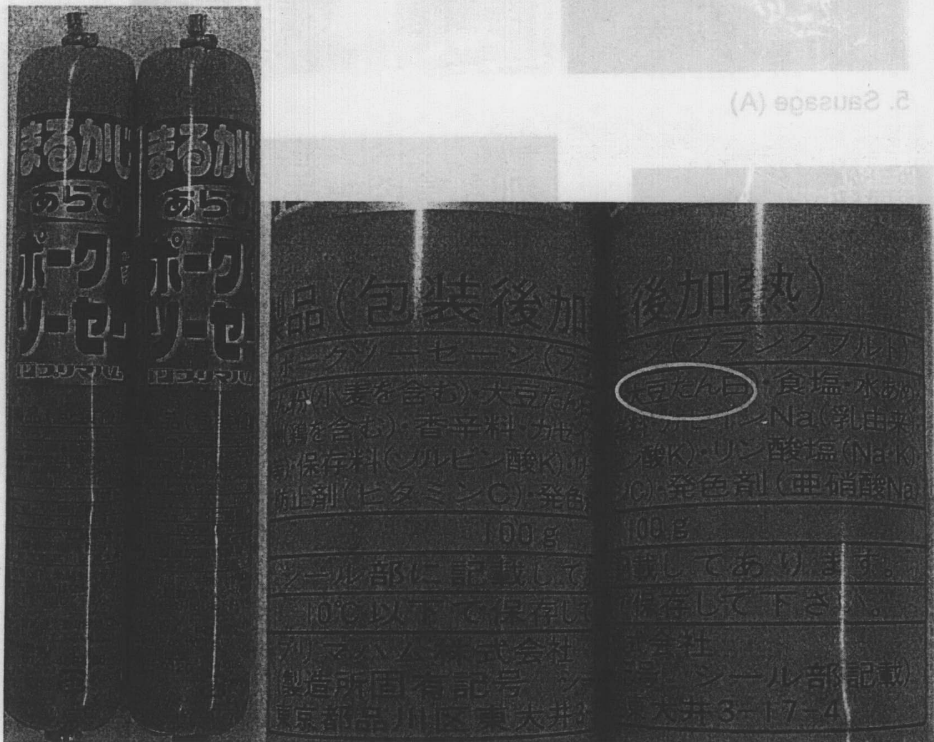 5. Sausage (A)
まるかじ
あらび
ポーク
ソーセー
プリマハム
まるかじ
あらび
ポーク
ソーセー
プリマハム
品(包装後加
ポークソーセージ(フ
(小麦を含む)・大豆たん
を含む)・香辛料・カゼイ
保存料(ソルビン酸K)・リ
防止剤(ビタミンC)・発色
100g
シール部に記載して
10℃以下で保存して
プリマハム株式会社
製造所固有記号 シー
東京都品川区東大井
後加熱)
(フランクフルト)
大豆たん白・食塩・水あめ
ンNa(乳由来
酸K)・リン酸塩(Na・K)
C)・発色剤(亜硝酸Na
100g
載してあります。
保存して下さい。
会社
シール部記載)
大井3-17-4